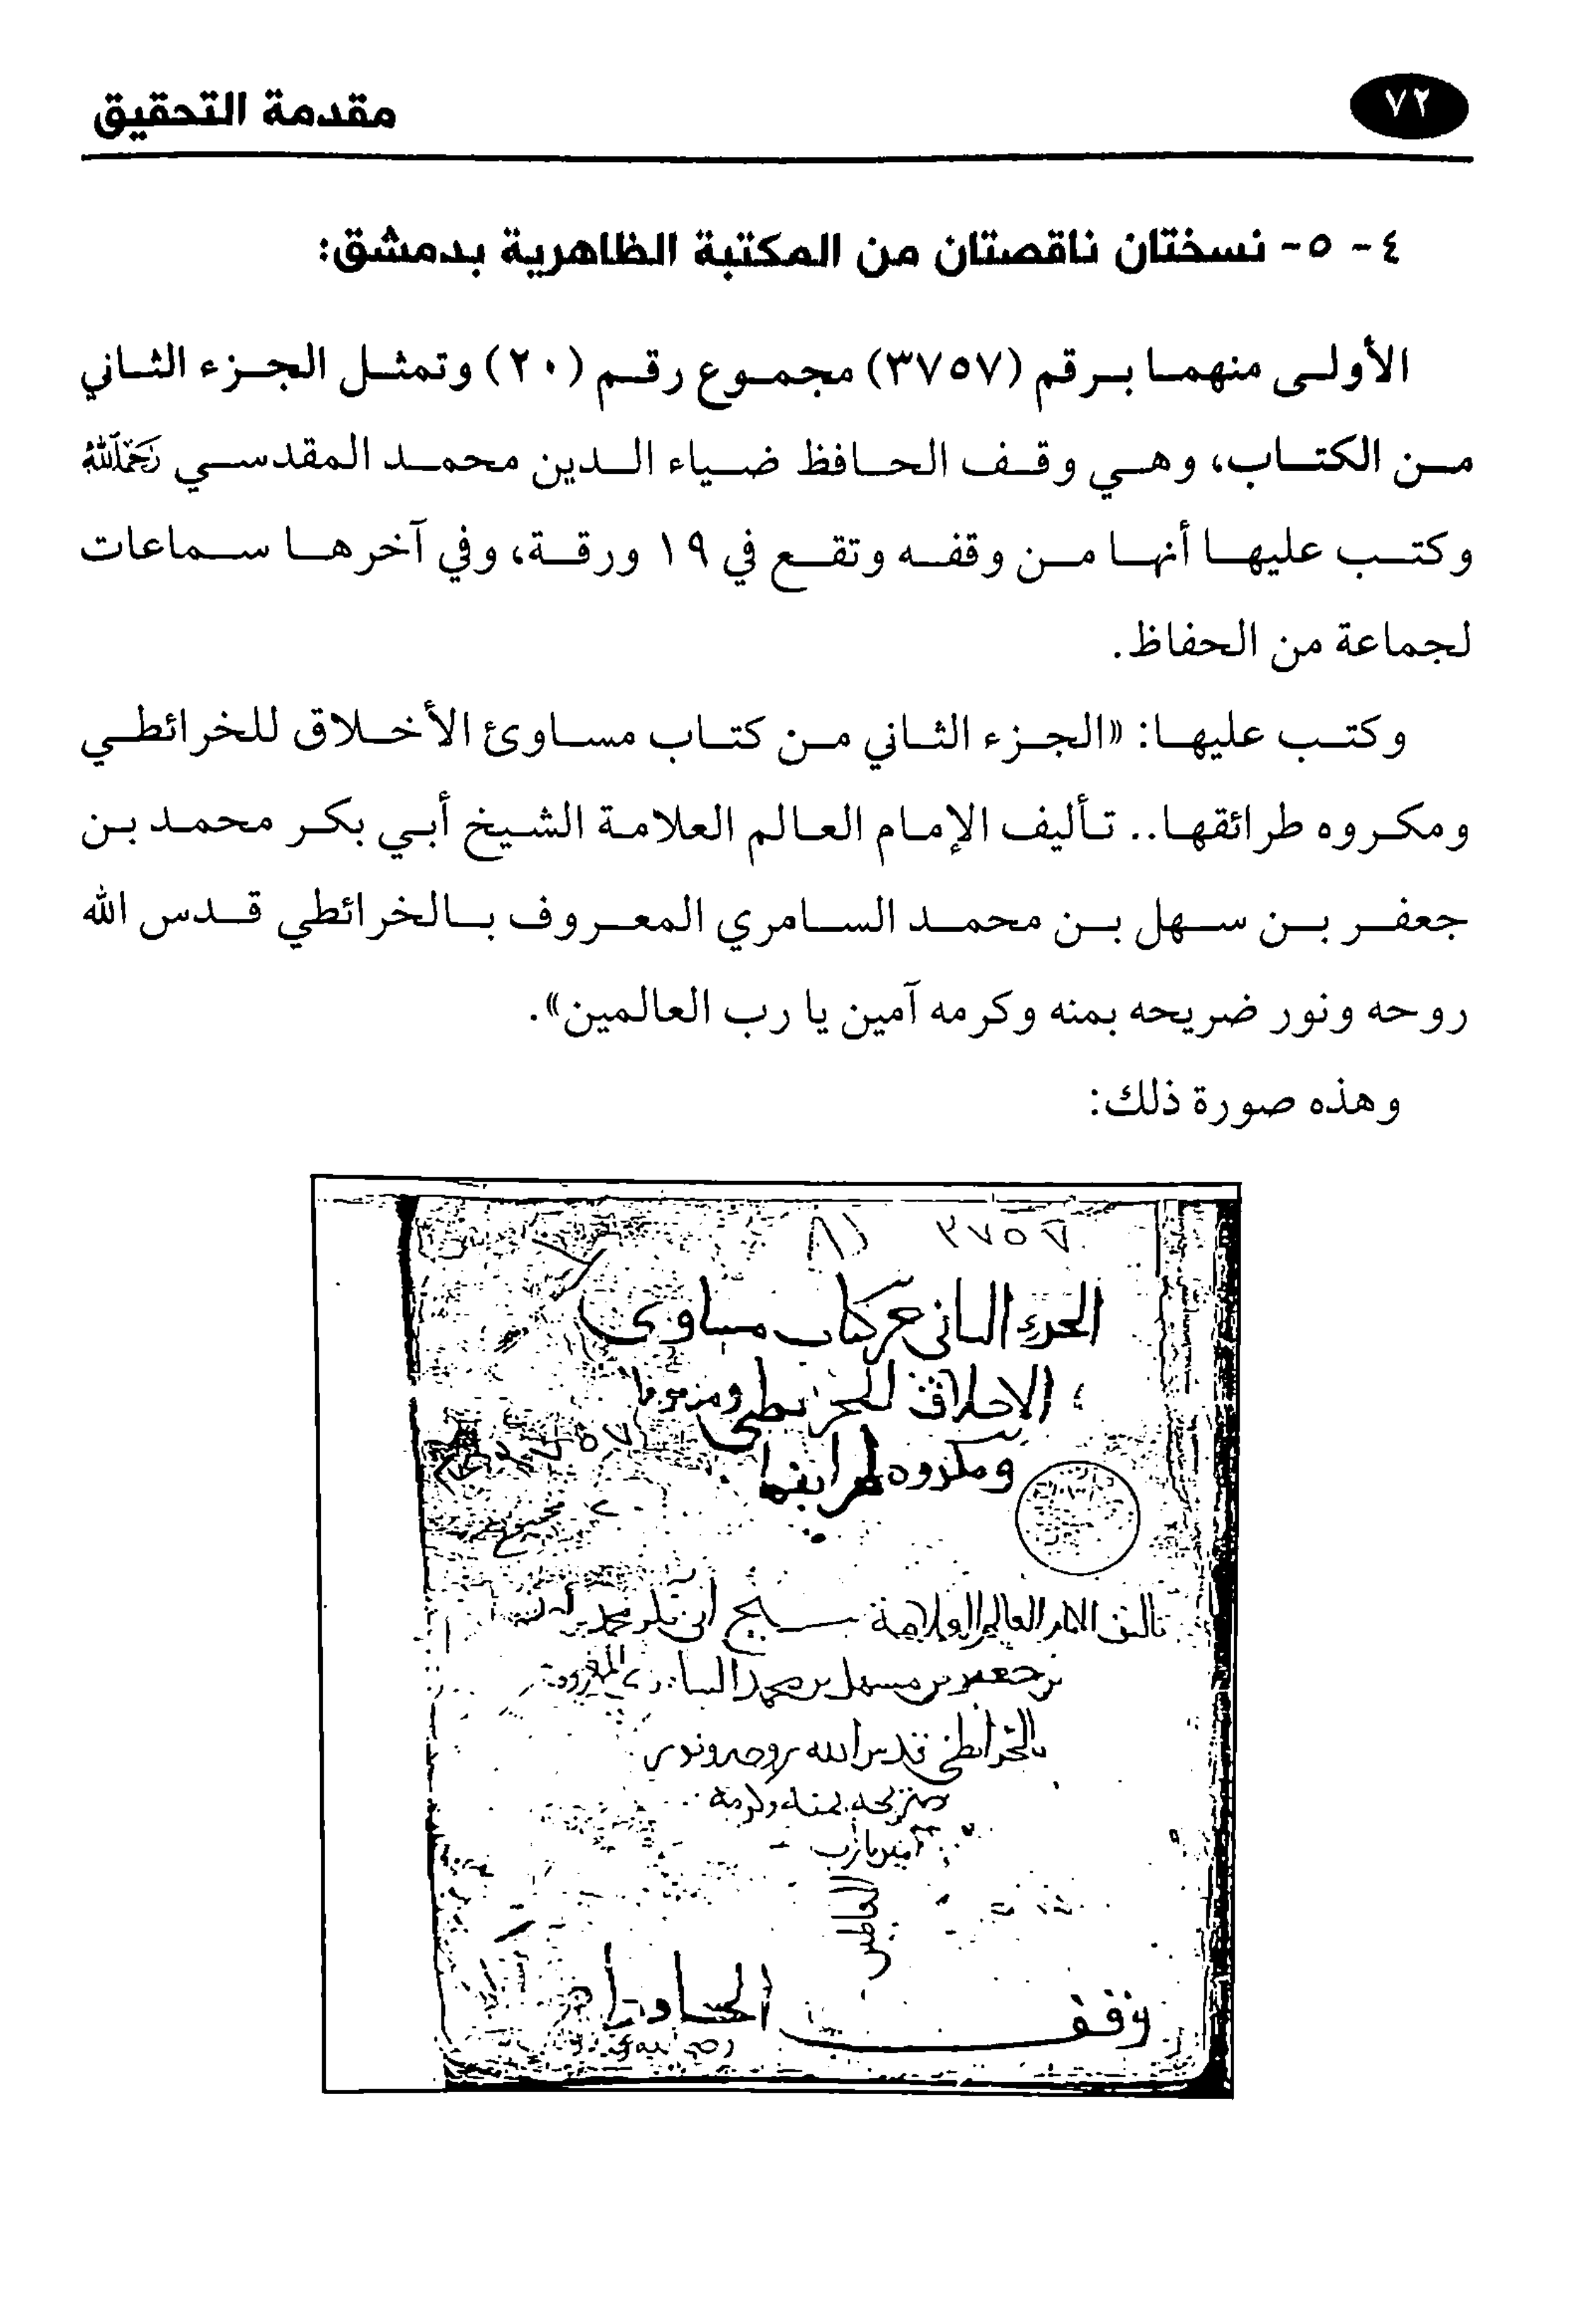 ٧٢
مقدمة التحقيق
٤ - ٥- نسختان ناقصتان من المكتبة الظاهرية بدمشق:
الأولى منهما برقم (٣٧٥٧) مجموع رقم (٢٠) وتمثل الجزء الثاني
من الكتاب، وهي وقف الحافظ ضياء الدين محمد المقدسي رَحِمَهُ اللَّهُ
وكتب عليها أنها من وقفه وتقع في ١٩ ورقة، وفي آخرها سماعات
لجماعة من الحفاظ.
وكتب عليها: «الجزء الثاني من كتاب مساوئ الأخلاق للخرائطي
ومكروه طرائقها.. تأليف الإمام العالم العلامة الشيخ أبي بكر محمد بن
جعفر بن سهل بن محمد السامري المعروف بالخرائطي قدس الله
روحه ونور ضريحه بمنه وكرمه آمين يا رب العالمين».
وهذه صورة ذلك:
٣٧٥٧
الجزء الثاني من كتاب مساوى
الاخلاق للخرائطي ومذمومها
ومكروه طرايقها
٣٧٥٧
مجموع ٢٠
تاليف الامام العالم العلامة الشيخ ابي بكر محمد
بن جعفر بن سهل بن محمد السامري المعروف
بالخرائطي قدس الله روحه ونور
ضريحه بمنه وكرمه
امين يا رب
العالمين
وقف الحافظ